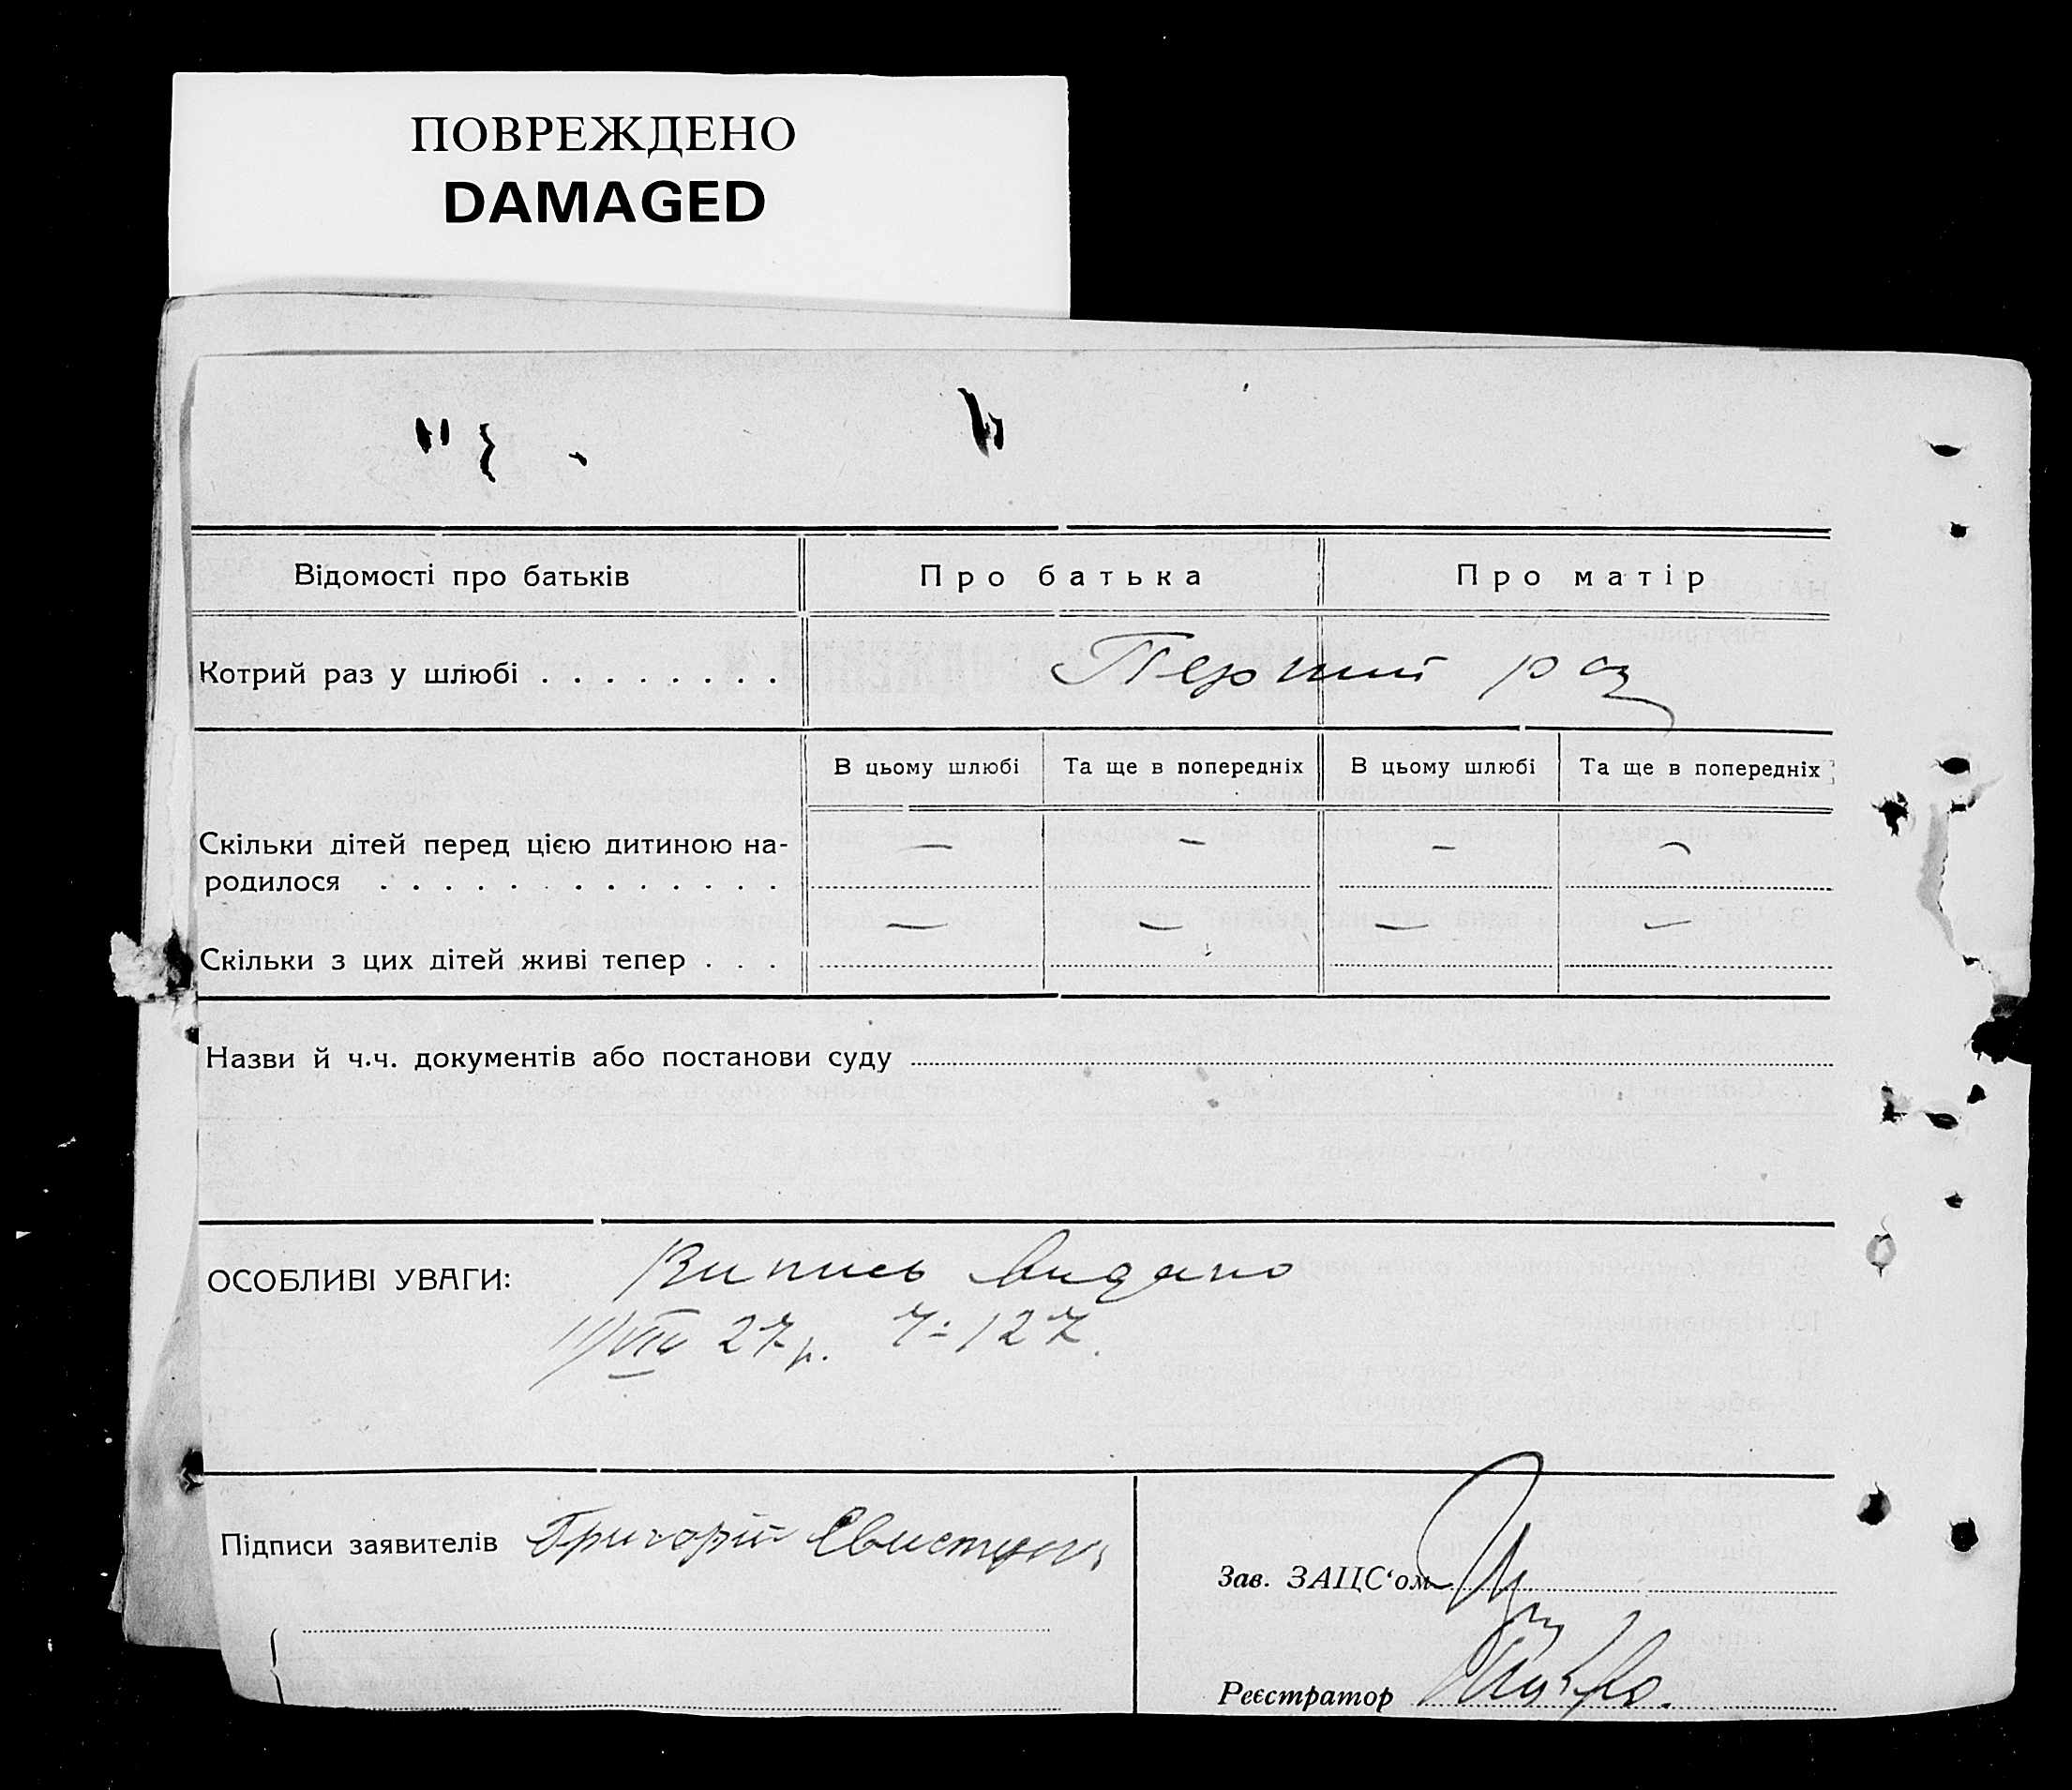 ПОВРЕЖДЕНО
DAMAGED
Відомості про батьків Про батька Про матір
Котрий раз у шлюбі . . . . . . . . Перший раз
В цьому шлюбі Та ще в попередніх В цьому шлюбі Та ще в попередніх
Скільки дітей перед цією дитиною на- — — — —
родилося . . . . . . . . . . . . .
Скільки з цих дітей живі тепер . . . — — — —
Назви й ч.ч. документів або постанови суду
ОСОБЛИВІ УВАГИ: Випись видано
11/VIII 27 р. 127.
Підписи заявителів Григорій Свистун
Зав. ЗАЦС‘ом
Реєстратор